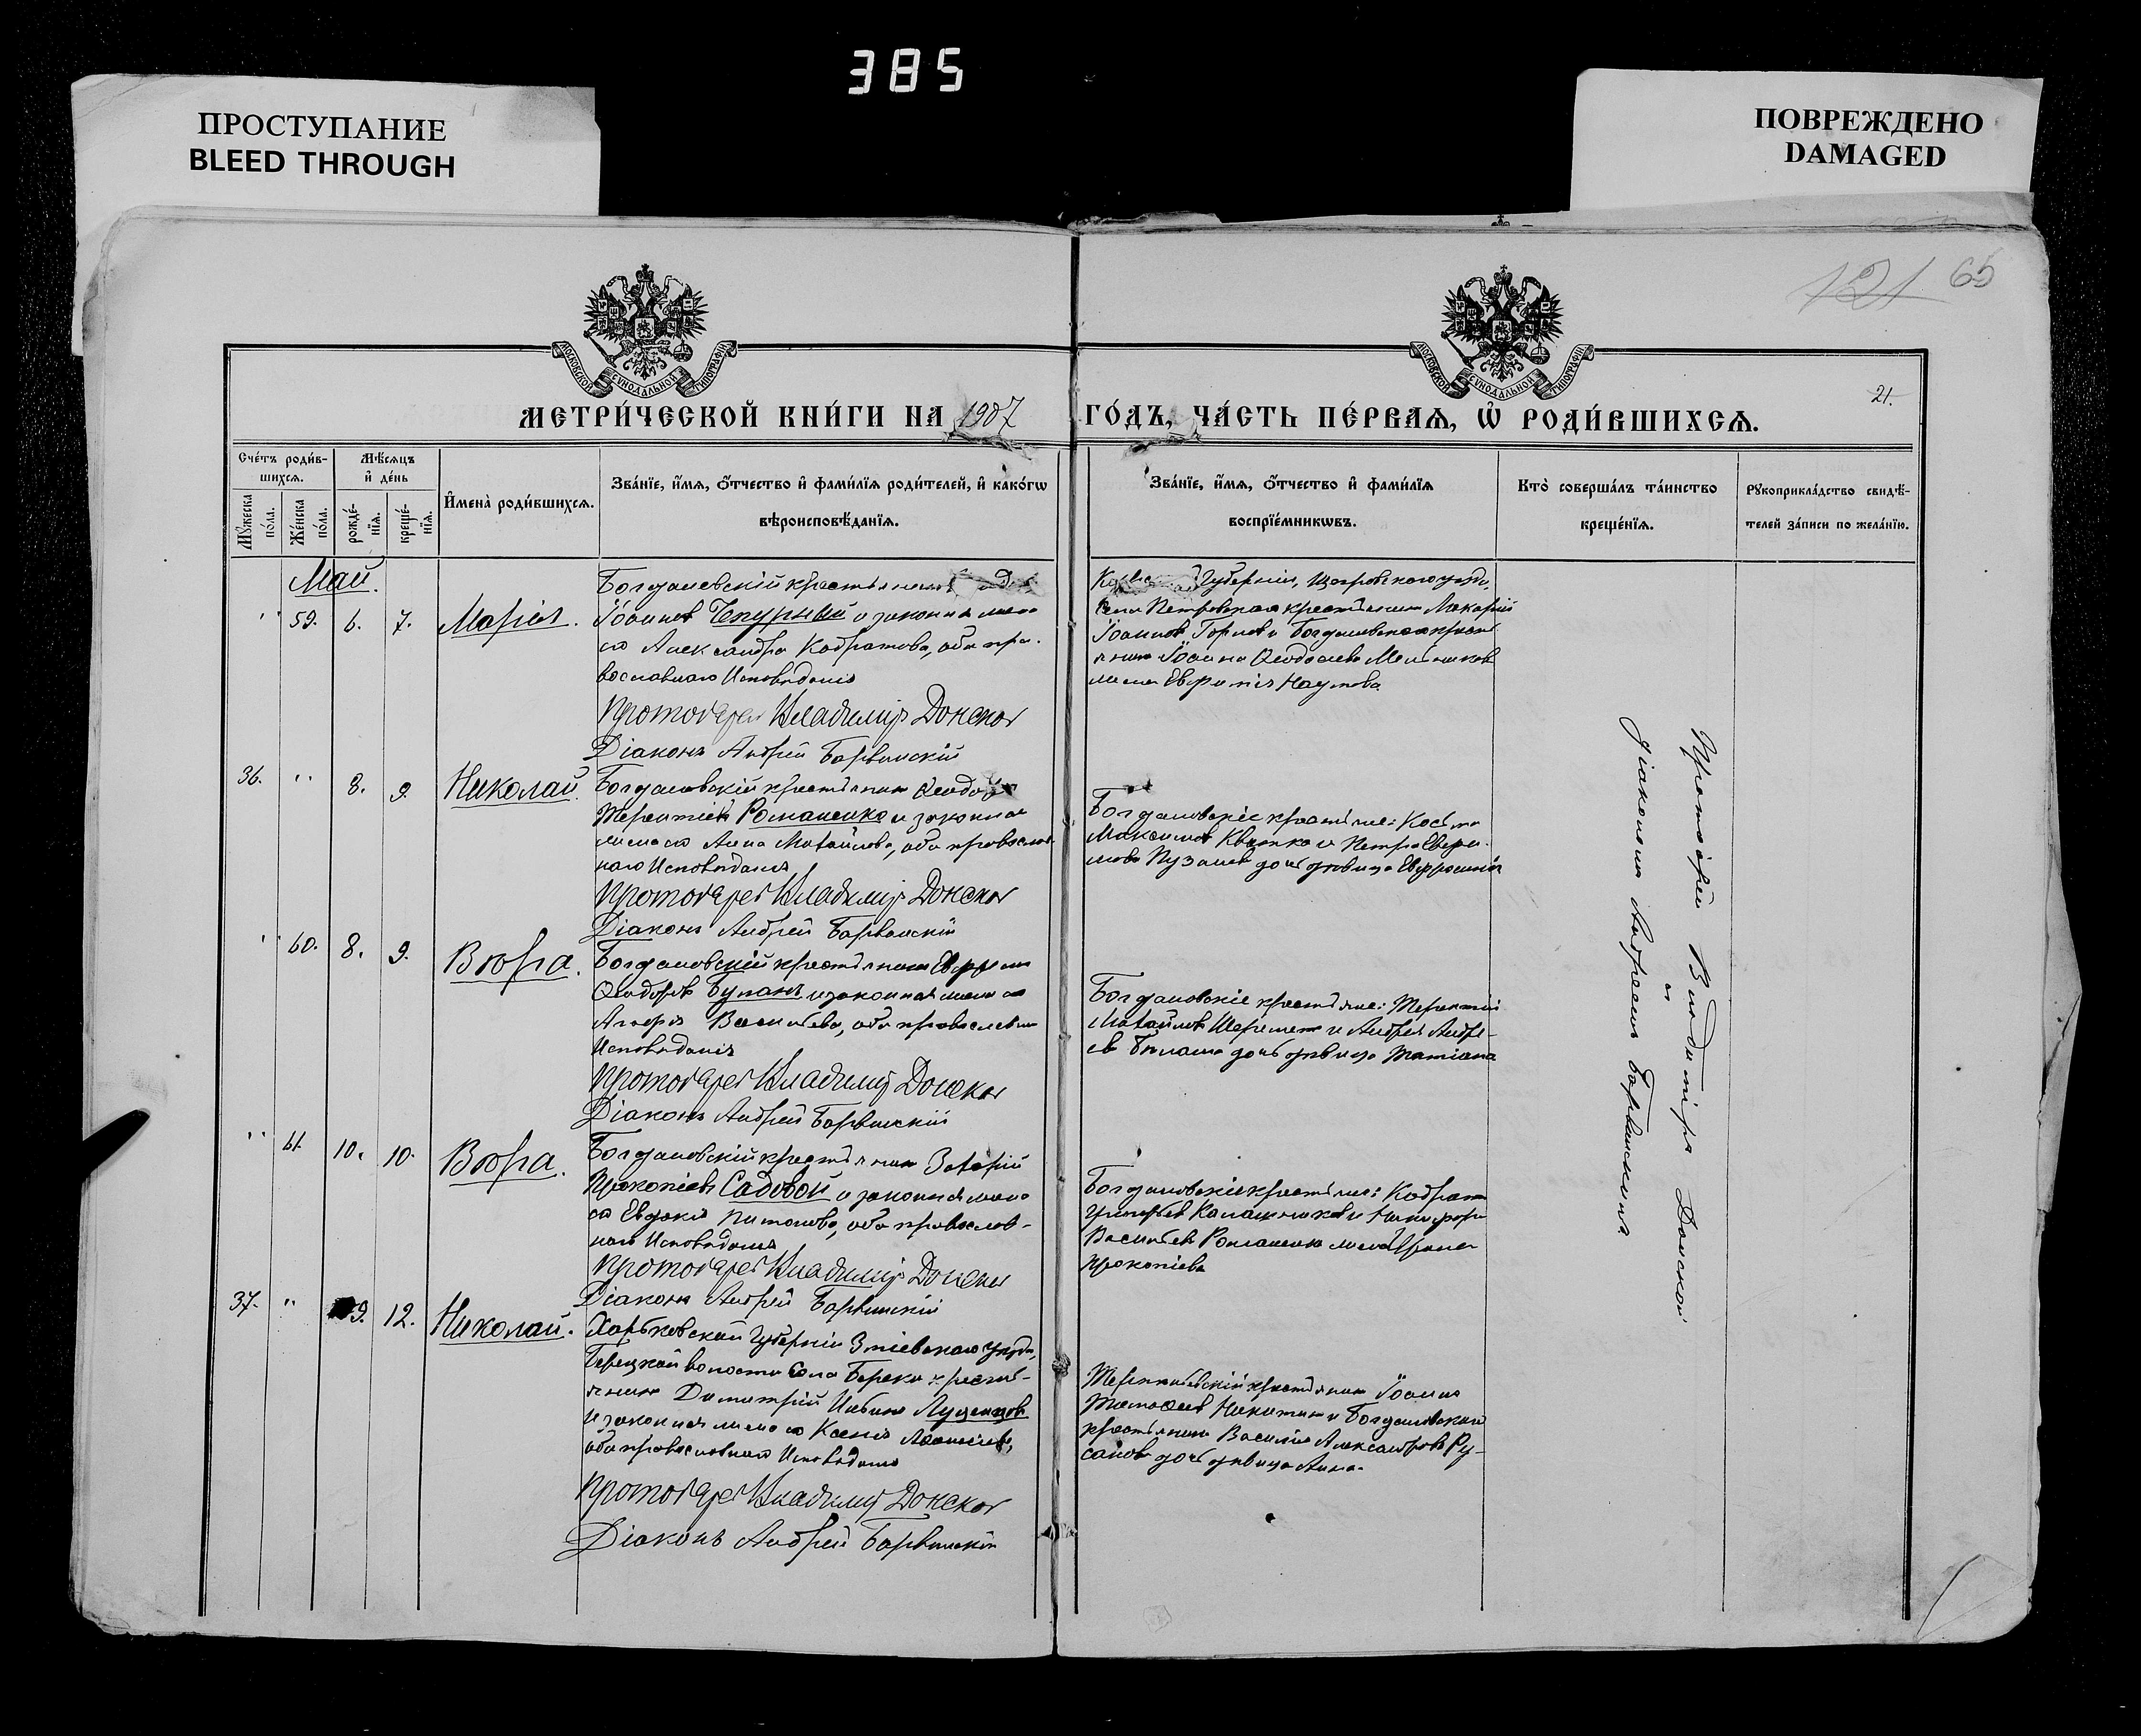 385
ПРОСТУПАНИЕ
BLEED THROUGH
ПОВРЕЖДЕНО
DAMAGED
121 65
МОСКОВСКОЙ СѴНОДАЛЬНОЙ ТИПОГРАФІИ
МОСКОВСКОЙ СѴНОДАЛЬНОЙ ТИПОГРАФІИ
21.
МЕТРИ́ЧЕСКОЙ КНИ́ГИ НА 1907 ГО́ДЪ, ЧА́СТЬ ПЕ́РВАѦ, Ѡ҆ РОДИ́ВШИХСѦ.
Сче́тъ роди́в-
шихсѧ.
Мꙋ́жеска по́ла.
Же́нска по́ла.
Мѣ́сѧцъ
и҆ де́нь
рожде́-
нїѧ.
креще́-
нїѧ.
И҆мена̀ роди́вшихсѧ.
Зва́нїе, и҆́мѧ, ѻ҆́тчество и҆ фами́лїѧ роди́телей, и҆ како́гѡ
вѣроисповѣ́данїѧ.
Зва́нїе, и҆́мѧ, ѻ҆́тчество и҆ фами́лїѧ
воспрїе́мникѡвъ.
Кто̀ соверша́лъ та́инство
креще́нїѧ.
Рꙋкоприкла́дство свидѣ́-
телей за́писи по жела́нїю.
Май.
" 59. 6. 7. Марія.
Богдановскій крестьянинъ
Іоанновъ Чепурный и законная жена
его Александра Кодратова, оба пра-
вославнаго Исповѣданія
Протоіерей Владимір Донской
Діаконъ Андрей Барвинскій
Губерніи, Щигровскаго уѣзда,
Села Петровскаго крестьянинъ Макарій
Іоанновъ Горлов и Богдановскаго крест
янина Іоанна Ѳеодосіева Мельникова
жена Евфимія Наумова
36. " 8. 9. Николай.
Богдановскій крестьянинъ Ѳеодоръ
Терентіевъ Романенко и законная
жена его Анна Михайлова, оба православ
наго Исповѣданія
Протоіерей Владимір Донской
Діаконъ Андрей Барвинскій
Богдановскіе крестьяне: Косьма
Максимовъ Квитко и Петра Евфи-
мова Пузанова дочь дѣвица Евфросинія
" 60. 8. 9. Вѣра.
Богдановскій крестьянинъ Евфимъ
Ѳеодоровъ Буланъ и законная жена его
Агафія Васильева, оба православнаго
Исповѣданія
Протоіерей Владимір Донской
Діаконъ Андрей Барвинскій
Богдановскіе крестьяне: Терентій
Михайловъ Шереметъ и Андрея Андре-
ева дочь дѣвица Татіана
" 61. 10. 10. Вѣра.
Богдановскій крестьянинъ Захарій
Прокопіевъ Садовой и законная жена
его Евдокія оба православ-
наго Исповѣданія
Протоіерей Владимір Донской
Діаконъ Андрей Барвинскій
Богдановскіе крестьяне: Кодратъ
Григорьевъ Калашников и Никифора
Васильева Романенко жена Ирина
Прокопіева
37. " 9. 12. Николай.
Харьковской Губерніи Зміевского уѣзда,
Берецкой волости Села Береки кресть-
янинъ Димитрій Луценковъ
и законная жена его Ксенія
оба православнаго Исповѣданія
Протоіерей Владимір Донской
Діаконъ Андрей Барвинскій
крестьянинъ Іоаннъ
Тимоѳеевъ Никитинъ и Богдановскаго
крестьянина Василія Александрова Ру-
санова дочь дѣвица Анна.
Протоіерей Владиміръ Донской
и
Діакономъ Андреемъ Барвинскимъ